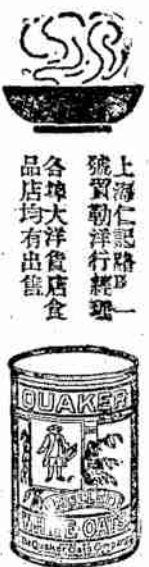 上海仁記路B一
號貿勒洋行經理
各埠大洋貨店食
品店均有出售
QUAKER
WHITE OATS
The Quaker Oats Company